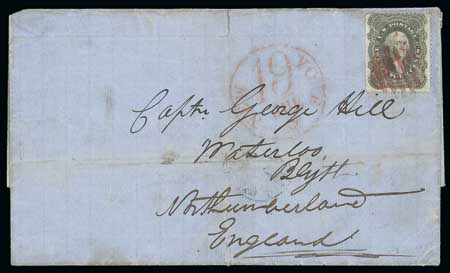 U.S. POSTAGE
YORK
19
Captn. George Hill
Waterloo
Blyth
Northumberland
England